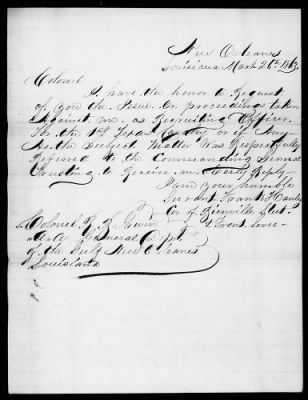 New Orleans
Louisiana March 26th 1863
Colonel
I have the honor to Request
of you the Issue or proceedings taken
Against me, as Recruiting Officer
for the 1st Texas Cavalry or if Any
As the Subject Matter Was Respectfully
Referred to the Commanding General
Trusting to Receive an Early Reply
I am your humble
Servant Frank
Cor of Bienville Street
& Front Levee
Colonel R. B. Irwin
A. A. General Dept
of the Gulf New Orleans
Louisiana